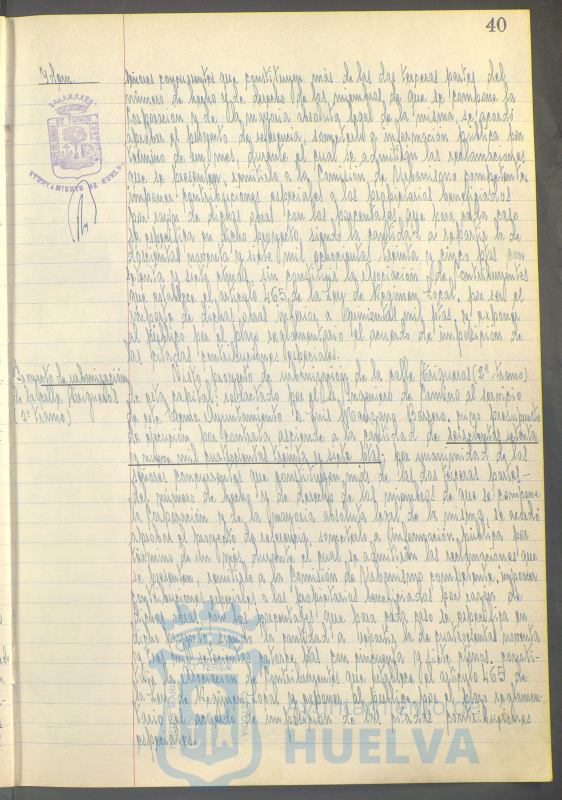 40
Idem.
señores concurrentes que constituyen más de las dos terceras partes del
número de hecho y de derecho de los miembros de que se compone la
Corporación y de la mayoría absoluta legal de la misma, se acordó
aprobar el proyecto de referencia, someterlo a información pública por
término de un mes, durante el cual se admitirán las reclamaciones
que se presenten, remitirlo a la Comisión de Urbanismo competente,
imponer contribuciones especiales a los propietarios beneficiados
por razón de dichas obras con los porcentajes que para cada caso
se especifica en dicho proyecto, siendo la cantidad a repartir la de
doscientas noventa y siete mil ochocientas treinta y cinco ptas con
y siete ctmos, sin constituir la Asociación de Contribuyentes
que establece el artículo 465 de la Ley de Régimen Local, por ser el
importe de dichas obras inferior a quinientas mil ptas. y exponer
al público por el plazo reglamentario el acuerdo de imposición de
las citadas contribuciones especiales.
Proyecto de urbanización
de la calle Trigueros
2º tramo)
Visto proyecto de urbanización de la calle Trigueros (2º tramo)
de esta capital, redactado por el Sr. Ingeniero de Caminos al servicio
de este Excmo. Ayuntamiento D. Luis Barrero, cuyo presupuesto
de ejecución por contrata asciende a la cantidad de seiscientas setenta
y nueve mil cuatrocientas treinta y siete ptas; por unanimidad de los
señores concurrentes que constituyen más de las dos terceras partes
del número de hecho y de derecho de los miembros de que se compone
la Corporación y de la mayoría absoluta legal de la misma, se acordó
aprobar el proyecto de referencia, someterlo a información pública por
término de un mes, durante el cual se admitirán las reclamaciones que
se presenten, remitirlo a la Comisión de Urbanismo competente, imponer
contribuciones especiales a los propietarios beneficiados por razón de
dichas obras con los porcentajes que para cada caso se especifica en
dicho proyecto, siendo la cantidad a repartir la de cuatrocientas noventa
y mil setecientas catorce ptas con cincuenta y siete ctmos, consti-
tuir la Asociación de Contribuyentes que establece el artículo 465 de
la Ley de Régimen Local y exponer al público por el plazo reglamen-
tario el acuerdo de imposición de las citadas contribuciones
especiales.
Ayuntamiento de
HUELVA